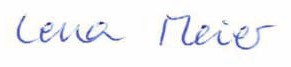 Lena Meier